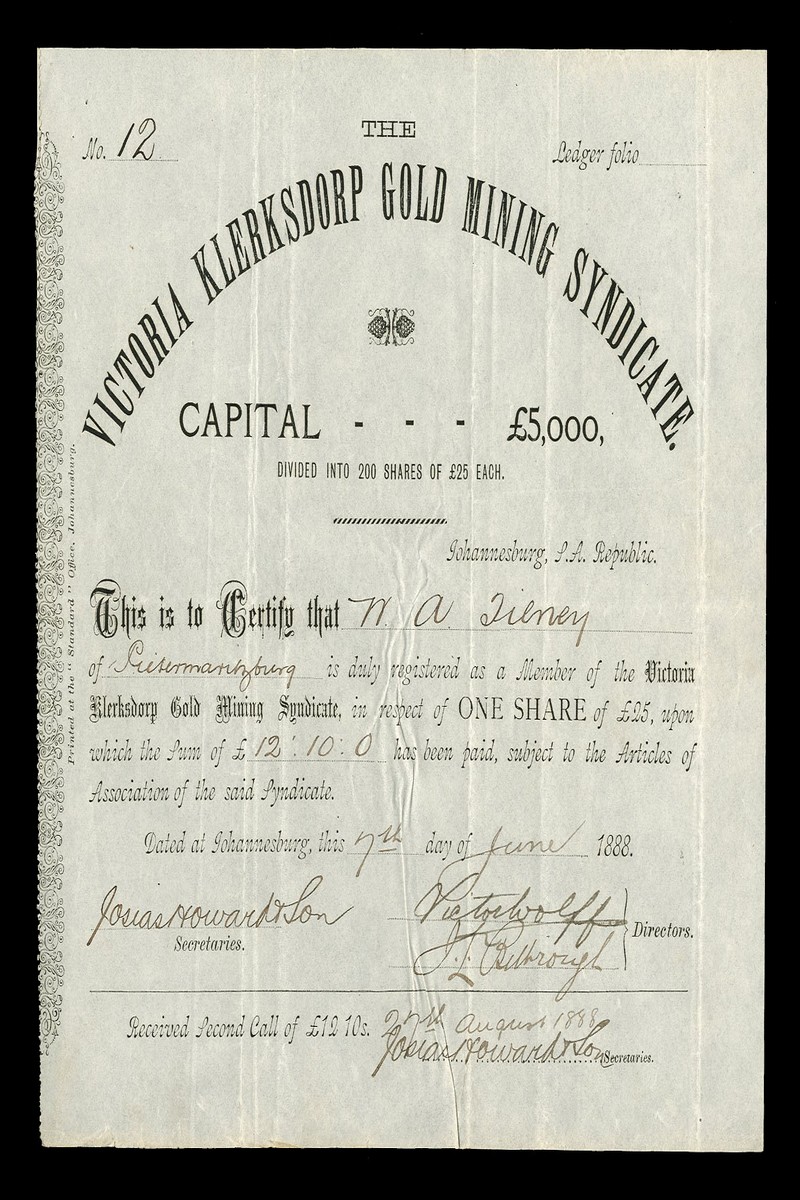 No. 12
THE
Ledger folio
VICTORIA KLERKSDORP GOLD MINING SYNDICATE.
CAPITAL - - - £5,000,
DIVIDED INTO 200 SHARES OF £25 EACH.
Johannesburg, S.A. Republic.
This is to Certify that W. A. Tilney
of Pietermaritzburg is duly registered as a Member of the Victoria
Klerksdorp Gold Mining Syndicate, in respect of ONE SHARE of £25, upon
which the Sum of £ 12 : 10 : 0 has been paid, subject to the Articles of
Association of the said Syndicate.
Dated at Johannesburg, this 7th day of June 1888.
Josias Howard & Son
Secretaries.
Victor Wolff
Directors.
Received Second Call of £12 10s. 27th August 1888
Josias Howard & Son Secretaries.
Printed at the "Standard" Office, Johannesburg.